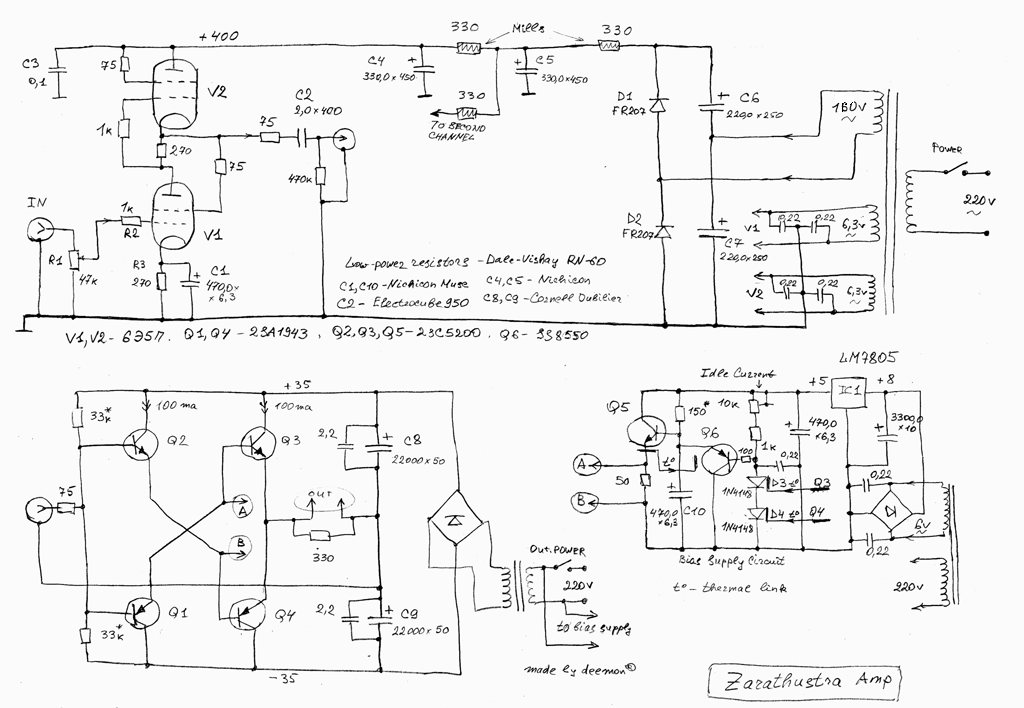 +400
330
Mills
330
C3
0,1
75
V2
C4
330,0×450
C5
330,0×450
C2
2,0×400
330
TO SECOND
CHANNEL
D1
FR207
C6
220,0×250
180v
1k
270
75
75
470k
Power
220v
IN
1k
R2
V1
R1
47k
R3
270
C1
470,0×
×6,3
D2
FR207
C7
220,0×250
V1
0,22
0,22
6,3v
V2
0,22
0,22
6,3v
Low-power resistors - Dale-Vishay RN-60
C1,C10-Nichicon Muse C4,C5 - Nichicon
C2 - Electrocube 950 C8,C9 - Cornell Dubilier
V1,V2- 6Э5П. Q1,Q4 - 2SA1943, Q2,Q3,Q5-2SC5200. Q6- SS8550
+35
33k*
100ma
100ma
Q2
Q3
2,2
C8
22000×50
75
A
B
out
330
33k*
Q1
Q4
2,2
C9
22000×50
-35
Out.POWER
220v
to bias supply
made by deemon©
LM7805
Idle Current
+5
IC1
+8
Q5
150*
10k
Q6
470,0
×6,3
3300,0
×10
1k
100
t°
0,22
A
50
B
1N4148
D3
t°
Q3
1N4148
D4
t°
Q4
470,0
×6,3
C10
0,22
6v
0,22
220v
Bias Supply Circuit
t°- thermal link
Zarathustra Amp